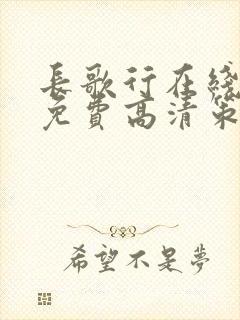 長歌行在綫
免費高清第
希望不是夢